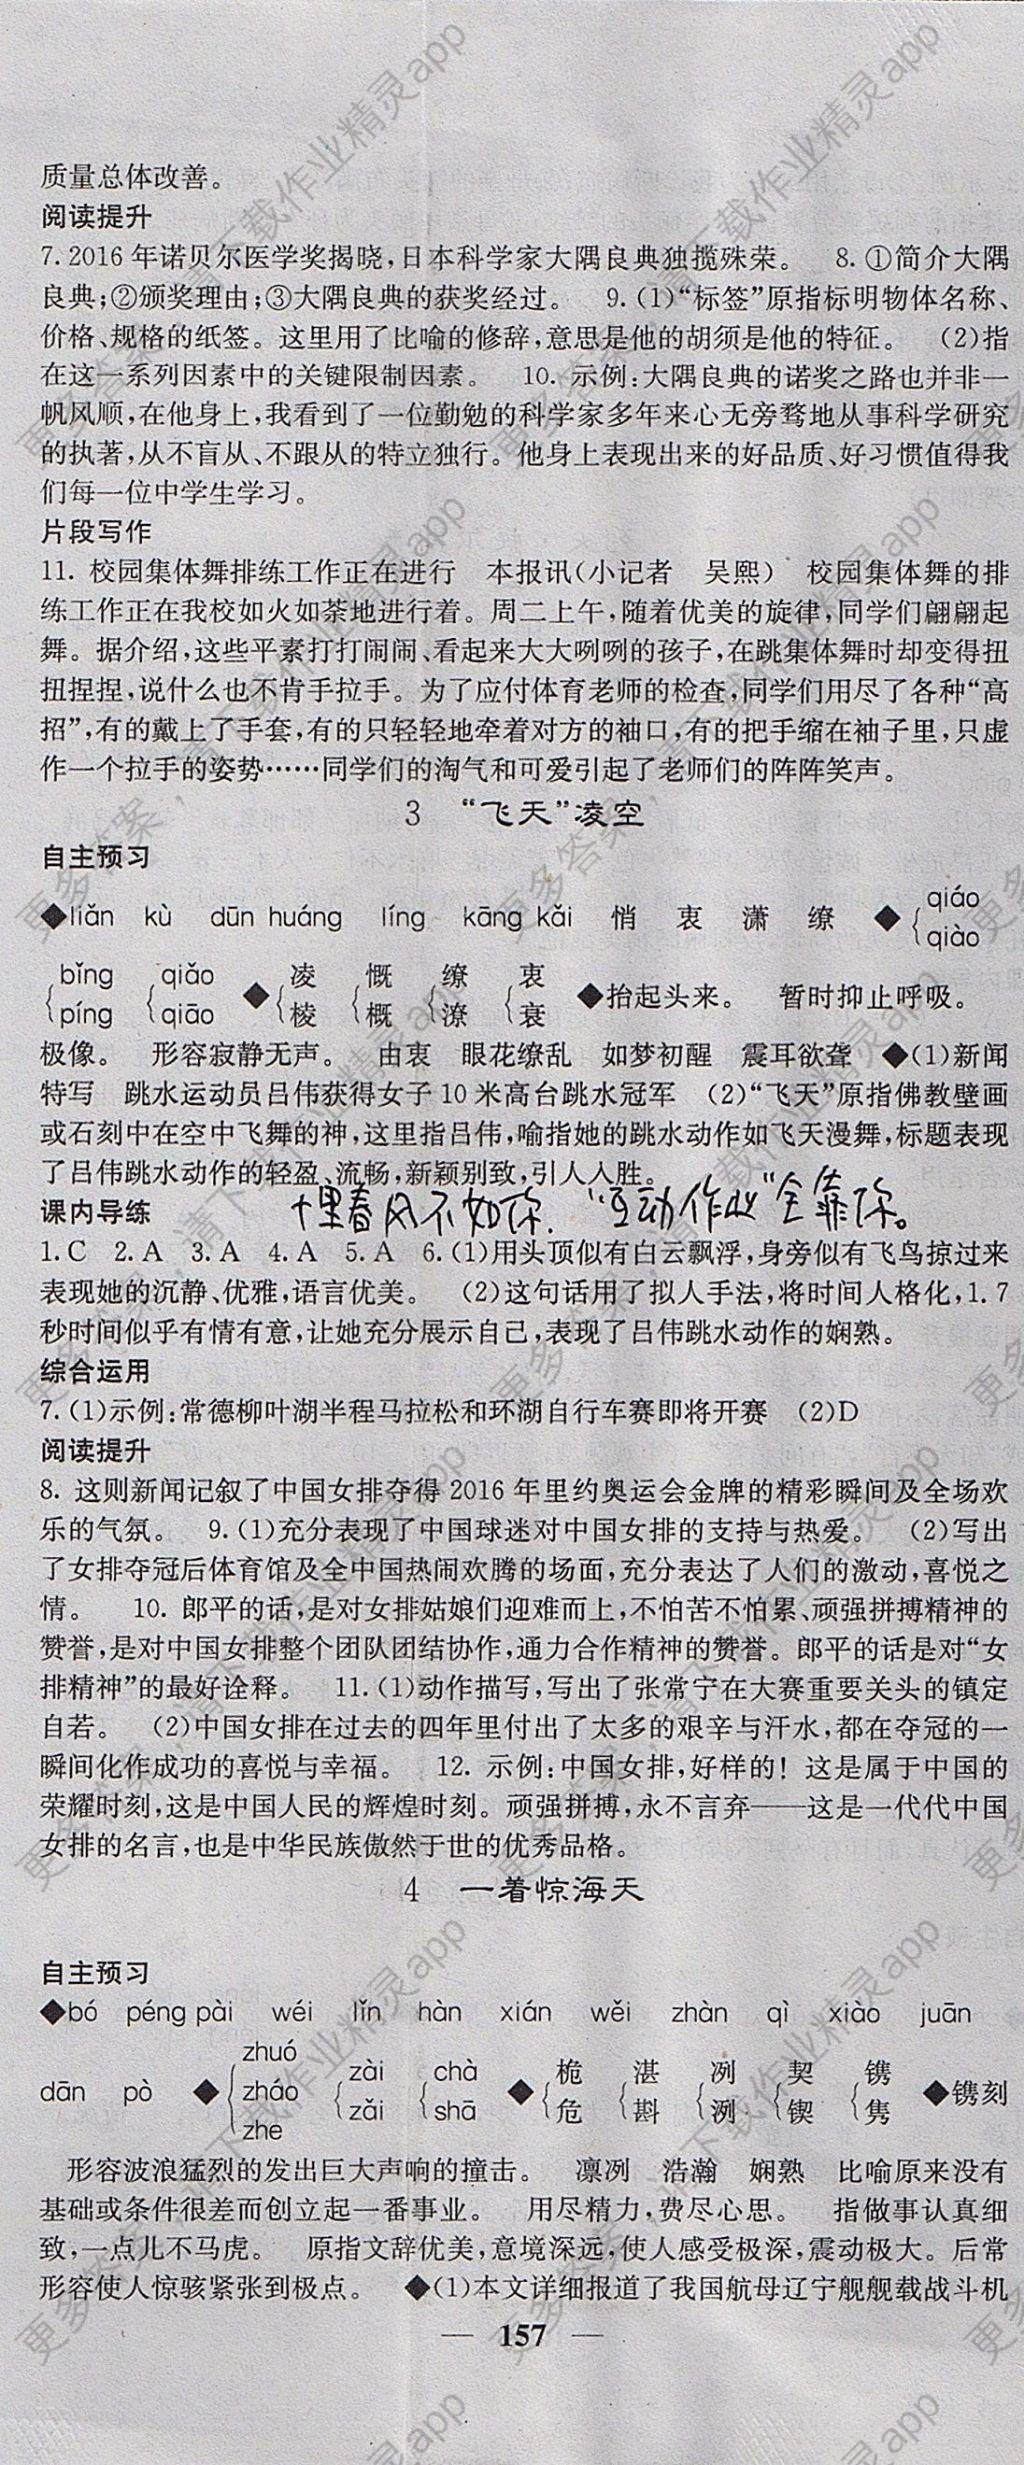 质量总体改善。
阅读提升
7. 2016 年诺贝尔医学奖揭晓,日本科学家大隅良典独揽殊荣。　8. ①简介大隅
良典;②颁奖理由;③大隅良典的获奖经过。　9. (1)“标签”原指标明物体名称、
价格、规格的纸签。这里用了比喻的修辞,意思是他的胡须是他的特征。　(2)指
在这一系列因素中的关键限制因素。　10. 示例:大隅良典的诺奖之路也并非一
帆风顺,在他身上,我看到了一位勤勉的科学家多年来心无旁骛地从事科学研究
的执著,从不盲从、不跟从的特立独行。他身上表现出来的好品质、好习惯值得我
们每一位中学生学习。
片段写作
11. 校园集体舞排练工作正在进行　本报讯(小记者　吴熙)　校园集体舞的排
练工作正在我校如火如荼地进行着。周二上午,随着优美的旋律,同学们翩翩起
舞。据介绍,这些平素打打闹闹、看起来大大咧咧的孩子,在跳集体舞时却变得扭
扭捏捏,说什么也不肯手拉手。为了应付体育老师的检查,同学们用尽了各种“高
招”,有的戴上了手套,有的只轻轻地牵着对方的袖口,有的把手缩在袖子里,只虚
作一个拉手的姿势……同学们的淘气和可爱引起了老师们的阵阵笑声。
3　“飞天”凌空
自主预习
◆liǎn　kù　dūn huáng　líng　kāng kǎi　悄　衷　潇　缭　◆{qiáo qiào
{bǐng píng　{qiǎo qiāo　◆{凌 棱　{慨 概　{缭 潦　{衷 衰　◆抬起头来。　暂时抑止呼吸。
极像。　形容寂静无声。　由衷　眼花缭乱　如梦初醒　震耳欲聋　◆(1)新闻
特写　跳水运动员吕伟获得女子 10 米高台跳水冠军　(2)“飞天”原指佛教壁画
或石刻中在空中飞舞的神,这里指吕伟,喻指她的跳水动作如飞天漫舞,标题表现
了吕伟跳水动作的轻盈、流畅,新颖别致,引人入胜。
课内导练　十里春风不如你.“互动作业”全靠你。
1. C　2. A　3. A　4. A　5. A　6. (1)用头顶似有白云飘浮,身旁似有飞鸟掠过来
表现她的沉静、优雅,语言优美。　(2)这句话用了拟人手法,将时间人格化,1. 7
秒时间似乎有情有意,让她充分展示自己,表现了吕伟跳水动作的娴熟。
综合运用
7. (1)示例:常德柳叶湖半程马拉松和环湖自行车赛即将开赛　(2)D
阅读提升
8. 这则新闻记叙了中国女排夺得 2016 年里约奥运会金牌的精彩瞬间及全场欢
乐的气氛。　9. (1)充分表现了中国球迷对中国女排的支持与热爱。　(2)写出
了女排夺冠后体育馆及全中国热闹欢腾的场面,充分表达了人们的激动,喜悦之
情。　10. 郎平的话,是对女排姑娘们迎难而上,不怕苦不怕累、顽强拼搏精神的
赞誉,是对中国女排整个团队团结协作,通力合作精神的赞誉。郎平的话是对“女
排精神”的最好诠释。　11. (1)动作描写,写出了张常宁在大赛重要关头的镇定
自若。　(2)中国女排在过去的四年里付出了太多的艰辛与汗水,都在夺冠的一
瞬间化作成功的喜悦与幸福。　12. 示例:中国女排,好样的! 这是属于中国的
荣耀时刻,这是中国人民的辉煌时刻。顽强拼搏,永不言弃——这是一代代中国
女排的名言,也是中华民族傲然于世的优秀品格。
4　一着惊海天
自主预习
◆bó　péng pài　wéi　lǐn　hàn　xián　wěi　zhàn　qì　xiào　juān
dān　pò　◆{zhuó zháo zhe　{zài zǎi　{chà shā　◆{桅 危　{湛 斟　{冽 洌　{契 锲　{镌 隽　◆镌刻
形容波浪猛烈的发出巨大声响的撞击。　凛冽　浩瀚　娴熟　比喻原来没有
基础或条件很差而创立起一番事业。　用尽精力,费尽心思。　指做事认真细
致,一点儿不马虎。　原指文辞优美,意境深远,使人感受极深,震动极大。后常
形容使人惊骇紧张到极点。　◆(1)本文详细报道了我国航母辽宁舰舰载战斗机
— 157 —
更多答案,请下载作业精灵app